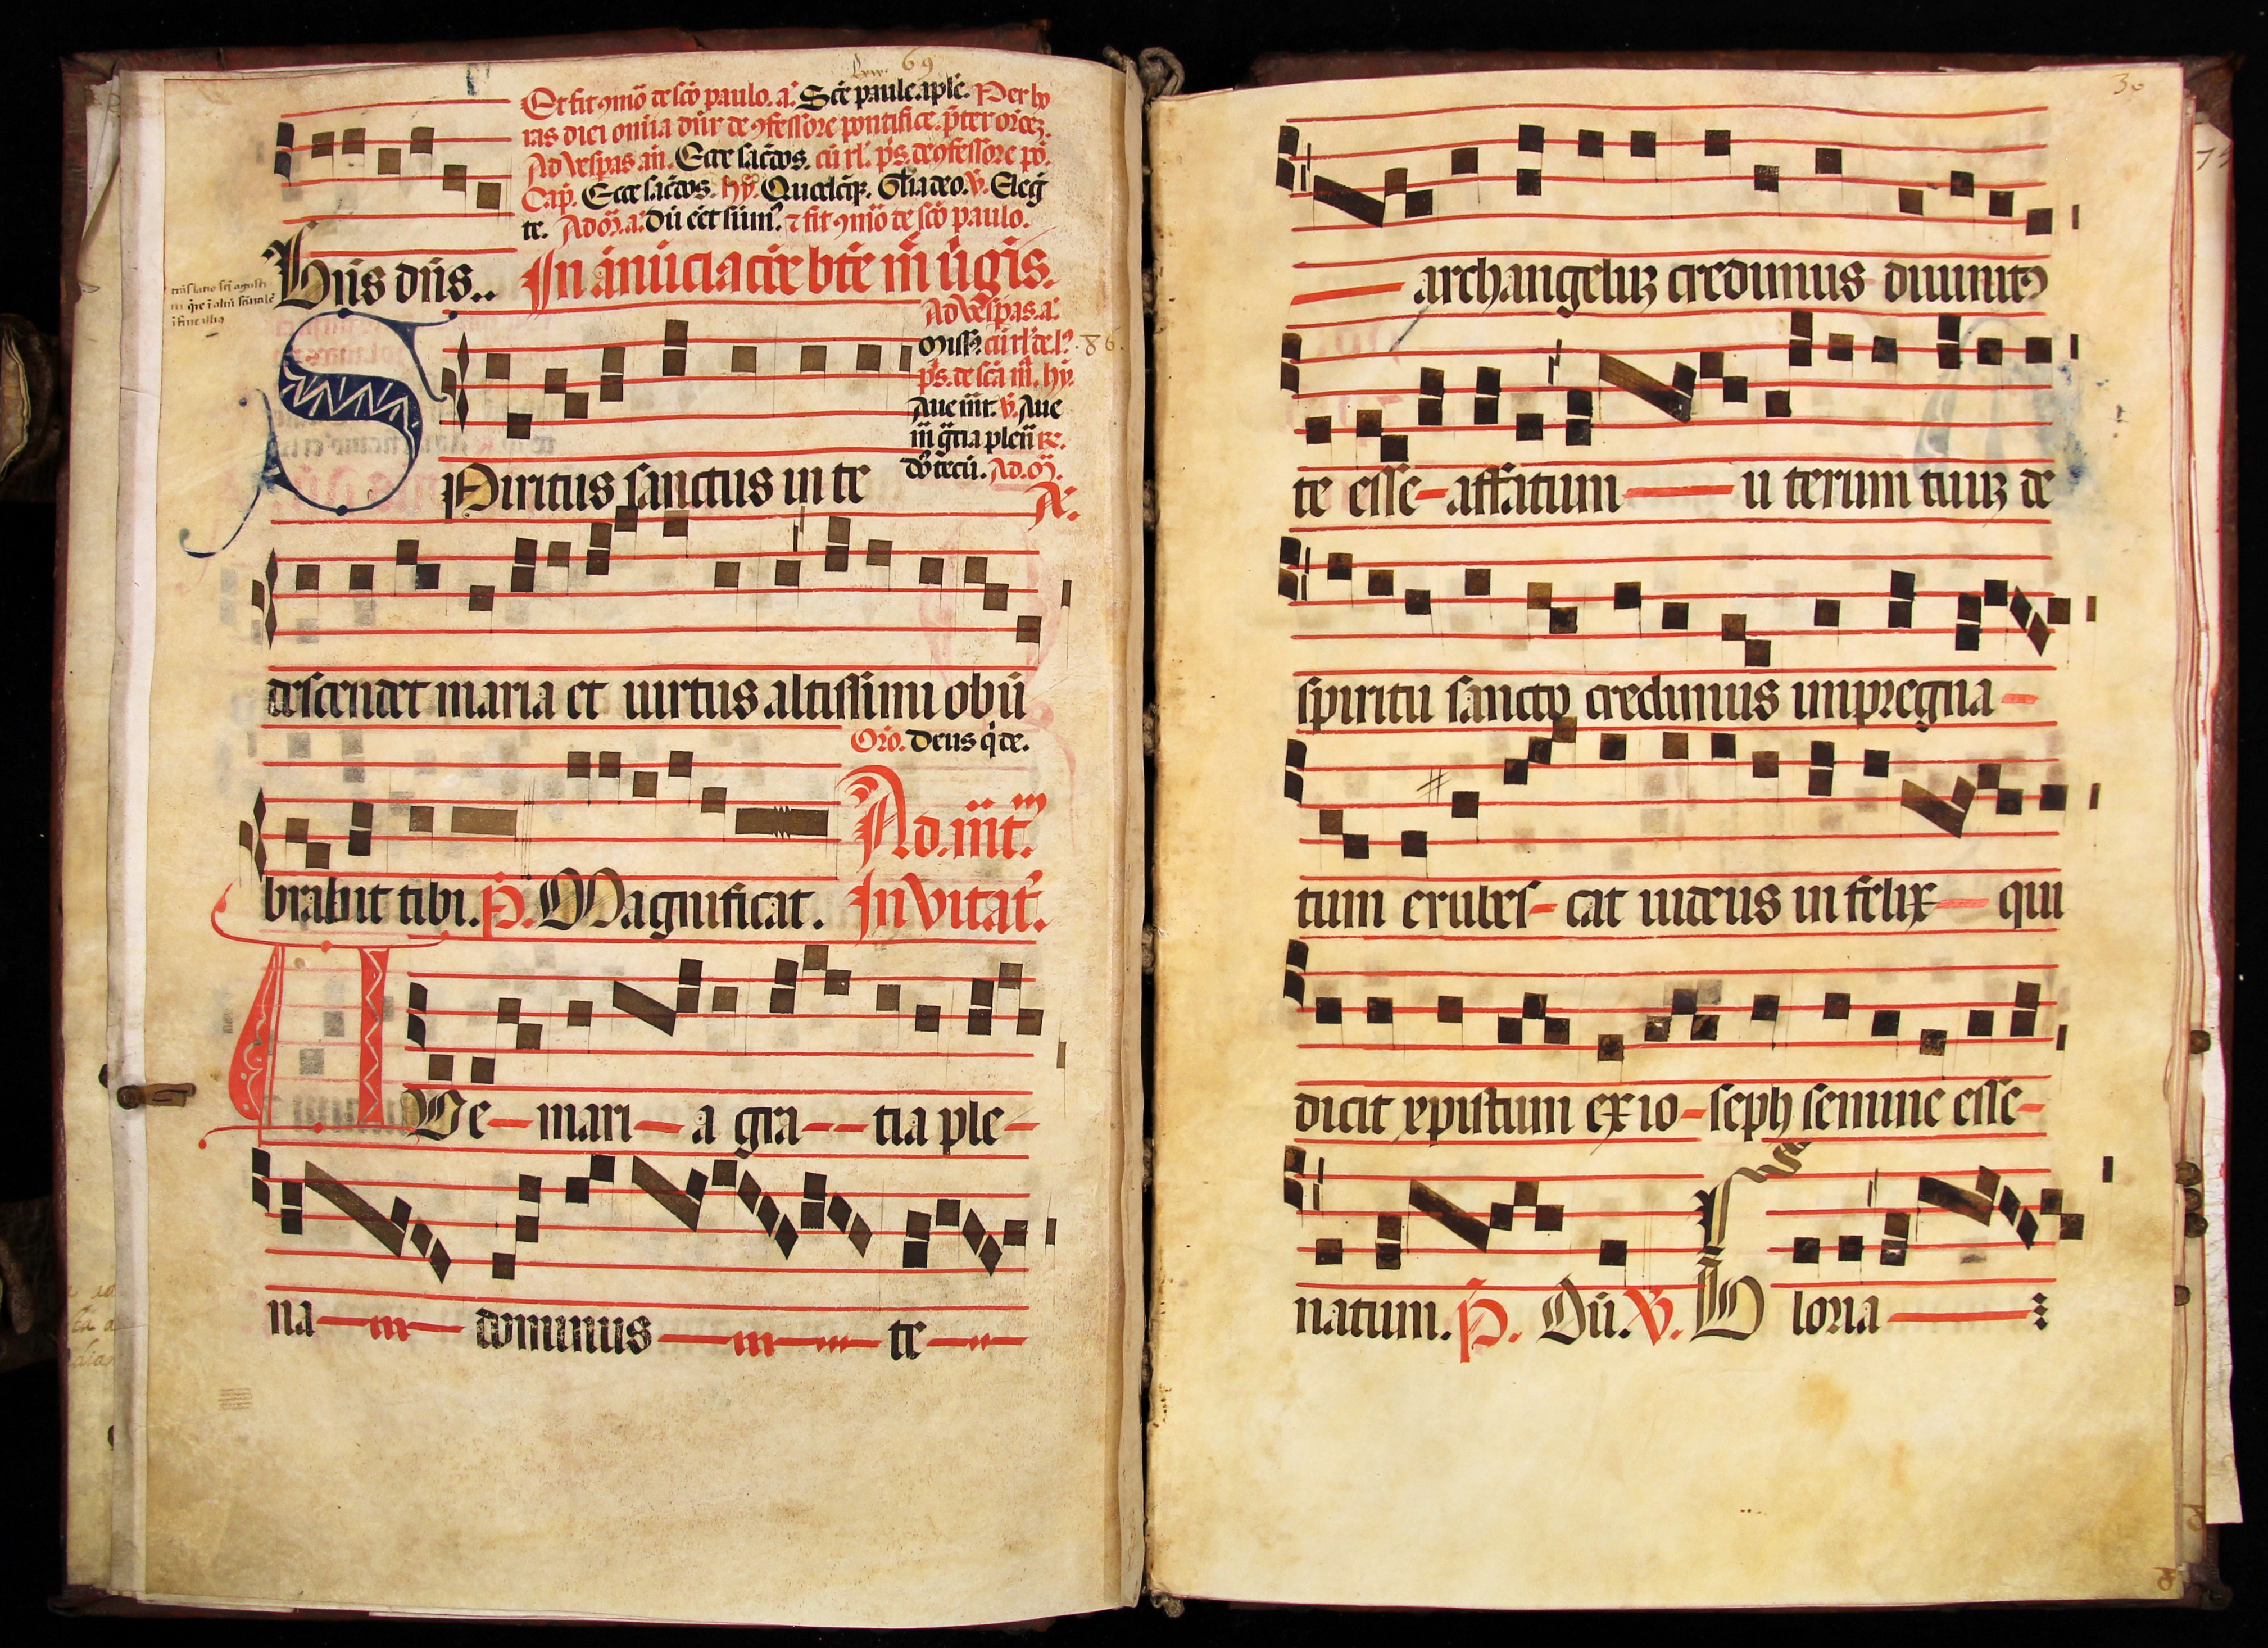 69
Et fit ɔmō de scō paulo. a. Scē paule aplē. Per ho
ras diei omīa dnr de ɔfessore pontifice. p̄ter orōēz.
Ad vesꝑas. an̄. Ecce sac̄dos. cū rl. ps. de ɔfessore pō.
Cap. Ecce sac̄dos. hȳ.
te. Ad m̄. a. Dū eēt sum̄. ⁊ fit ɔmō de scō paulo.
huīs dn̄s.. In ānūciacōe btē m̄ v̄gīs.
Ad vesꝑas. a.
86.
ps. de scā m̄. hȳ.
Aue mr. v̄. Aue
m̄ gr̄a plen̄ re.
dn̄s tecū. Ad. m̄.
SPiritus sanctus in te
A.
descendet maria et uirtus altissimi obū
Orō. Deus q̄ de.
brabit tibi. P̄. Magnificat. Invitat.
Ad. mt̄.
AVe mari a gra tia ple
na dominus te
30
archangeluʒ credimus diuinitꝰ
te esse affatum u terum tuuʒ de
spiritu sancto credimus impregna
tum erubes cat iudeus infelix qui
dicit xpistum ex io seph semine esse
natum. P̄. Dū. V̄. G loria